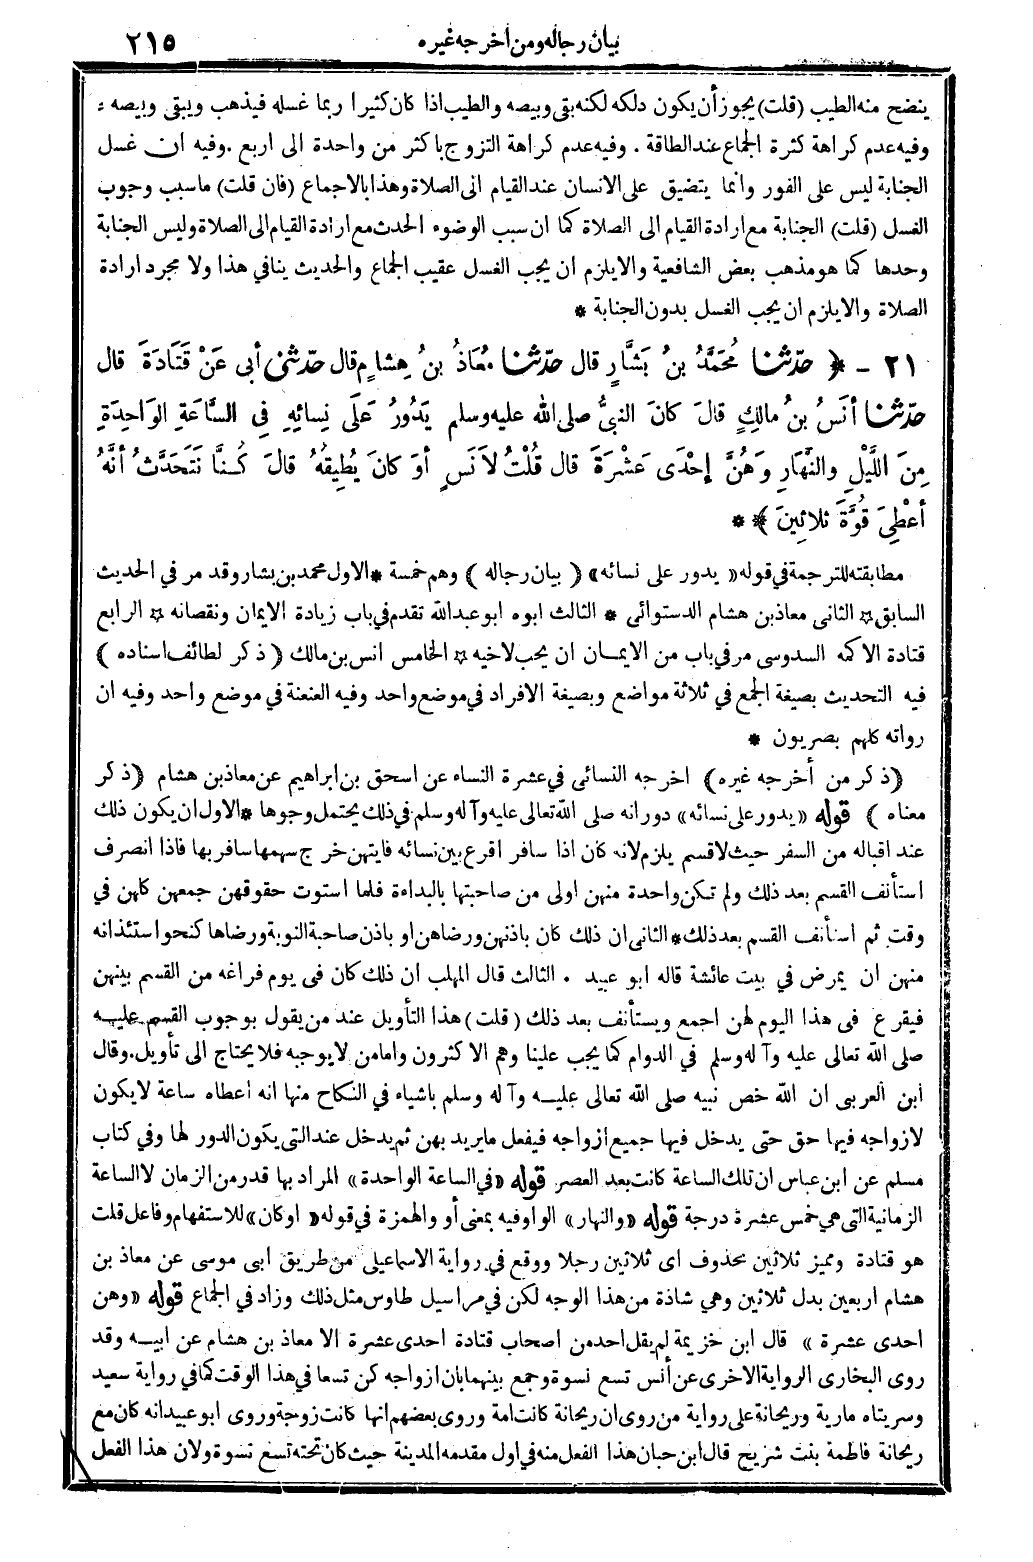 بيان رجاله ومن أخرجه غيره ٢١٥
ينضح منه الطيب (قلت) يجوز أن يكون دلكه لكنه بقى وبيصه والطيب اذا كان كثيرا ربما غسله فيذهب ويبقى وبيصه :
وفيه عدم كراهة كثرة الجماع عند الطاقة . وفيه عدم كراهة التزوج باكثر من واحدة الى اربع . وفيه ان غسل
الجنابة ليس على الفور وانما يتضيق على الانسان عند القيام الى الصلاة وهذا بالاجماع (فان قلت) ما سبب وجوب
الغسل (قلت) الجنابة مع ارادة القيام الى الصلاة كما ان سبب الوضوء الحدث مع ارادة القيام الى الصلاة وليس الجنابة
وحدها كما هو مذهب بعض الشافعية والا يلزم ان يجب الغسل عقيب الجماع والحديث ينافي هذا ولا مجرد ارادة
الصلاة والا يلزم ان يجب الغسل بدون الجنابة *
٢١ - ﴿ حدّثنا مُحَمَّدُ بنُ بَشَّارٍ قال حدّثنا مُعَاذُ بنُ هِشامٍ قال حدّثنى أبى عَنْ قَتَادَةَ قال
حدّثنا أنَسُ بنُ مالِكٍ قالَ كانَ النبىُّ صلى الله عليه وسلم يَدُورُ عَلَى نِسائِهِ فِي السَّاعَةِ الوَاحِدَةِ
مِنَ اللَّيْلِ والنَّهَارِ وَهُنَّ إِحْدَى عَشْرَةَ قال قُلْتُ لأَنَسٍ أوَ كانَ يُطِيقُهُ قالَ كُنَّا نَتَحَدَّثُ أنَّهُ
أُعْطِىَ قُوَّةَ ثلاثِينَ ﴾ * *
مطابقته للترجمة في قوله « يدور على نسائه » ( بيان رجاله ) وهم خمسة * الاول محمد بن بشار وقد مر في الحديث
السابق ☆ الثانى معاذ بن هشام الدستوائى * الثالث ابوه ابو عبد الله تقدم في باب زيادة الايمان ونقصانه ☆ الرابع
قتادة الاكمه السدوسى مر في باب من الايمان ان يحب لاخيه ☆ الخامس انس بن مالك ( ذكر لطائف اسناده )
فيه التحديث بصيغة الجمع في ثلاثة مواضع وبصيغة الافراد في موضع واحد وفيه العنعنة في موضع واحد وفيه ان
رواته كلهم بصريون *
(ذكر من أخرجه غيره) اخرجه النسائى في عشرة النساء عن اسحق بن ابراهيم عن معاذ بن هشام (ذكر
معناه ) قوله « يدور على نسائه» دورانه صلى الله تعالى عليه وآله وسلم في ذلك يحتمل وجوها * الاول ان يكون ذلك
عند اقباله من السفر حيث لا قسم يلزم لانه كان اذا سافر اقرع بين نسائه فايتهن خرج سهمها سافر بها فاذا انصرف
استأنف القسم بعد ذلك ولم تكن واحدة منهن اولى من صاحبتها بالبداءة فلما استوت حقوقهن جمعهن كلهن في
وقت ثم استأنف القسم بعد ذلك * الثانى ان ذلك كان باذنهن ورضاهن او باذن صاحبة النوبة ورضاها كنحو استئذانه
منهن ان يمرض في بيت عائشة قاله ابو عبيد . الثالث قال المهلب ان ذلك كان فى يوم فراغه من القسم بينهن
فيقرع فى هذا اليوم لهن اجمع ويستأنف بعد ذلك ( قلت ) هذا التأويل عند من يقول بوجوب القسم عليه
صلى الله تعالى عليه وآله وسلم في الدوام كما يجب علينا وهم الاكثرون وامامن لا يوجبه فلا يحتاج الى تأويل . وقال
ابن العربى ان الله خص نبيه صلى الله تعالى عليه وآله وسلم باشياء في النكاح منها انه أعطاه ساعة لا يكون
لازواجه فيها حق حتى يدخل فيها جميع ازواجه فيفعل ما يريد بهن ثم يدخل عند التى يكون الدور لها وفي كتاب
مسلم عن ابن عباس ان تلك الساعة كانت بعد العصر قوله «في الساعة الواحدة» المراد بها قدر من الزمان لا الساعة
الزمانية التى هي خمس عشرة درجة قوله «والنهار» الواو فيه بمعنى أو والهمزة في قوله « اوكان » للاستفهام وفاعل قلت
هو قتادة ومميز ثلاثين محذوف اى ثلاثين رجلا ووقع في رواية الاسماعيلى من طريق ابى موسى عن معاذ بن
هشام اربعين بدل ثلاثين وهي شاذة من هذا الوجه لكن في مراسيل طاوس مثل ذلك وزاد في الجماع قوله « وهن
احدى عشرة » قال ابن خزيمة لم يقل احد من اصحاب قتادة احدى عشرة الا معاذ بن هشام عن ابيه وقد
روى البخارى الرواية الاخرى عن أنس تسع نسوة وجمع بينهما بان ازواجه كن تسعا في هذا الوقت كما في رواية سعيد
وسريتاه مارية وريحانة على رواية من روى ان ريحانة كانت امة وروى بعضهم انها كانت زوجة وروى ابو عبيد انه كان مع
ريحانة فاطمة بنت شريح قال ابن حبان هذا الفعل منه في اول مقدمه المدينة حيث كان تحته تسع نسوة ولان هذا الفعل